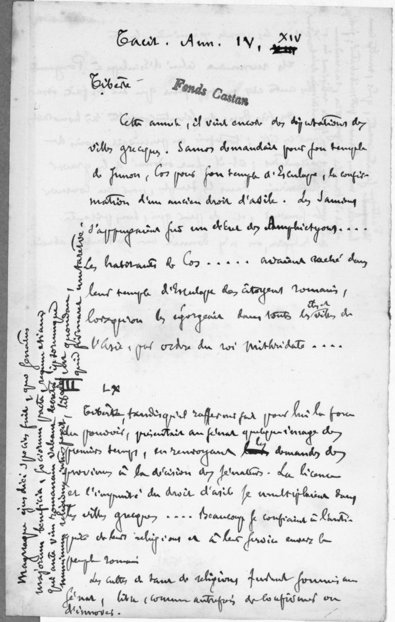 Tacit. Ann. IV, XIV
Tibère
Fonds Castan
Cette année, il vint encore des députations des
villes grecques. Samos demandait pour son temple
de Junon, Cos pour son temple d'Esculape, la confir-
mation d'un ancien droit d'asile. Les Samiens
s'appuyaient sur un décret des Amphictyons....
Les habitants de Cos ..... avaient caché dans
leur temple d'Esculape des citoyens romains,
lorsqu'on les égorgeait dans toutes les villes de
l'Asie, par ordre du roi Mithridate ....
LX
Tibère, tandis qu'il raffermissait pour lui la force
du pouvoir, présentait au sénat quelque image des
premiers temps, en renvoyant les demandes des
provinces à la décision des sénateurs. La licence
et l'impunité du droit d'asile se multipliaient dans
les villes grecques .... Beaucoup se confiaient à l'anti-
quité de leurs religions et à leur service envers le
peuple romain
Les cultes et de religions furent soumis au
sénat, libre, comme autrefois de confirmer ou
d'innover.
Magnaque ejus diei species fuit, quo senatus
majorum beneficia, sociorum pacta, regum etiam
qui ante vim romanam valuerant decreta, ipsorumque
numinum religiones introspexit, libero, ut quondam,
quid firmaret mutaretve.